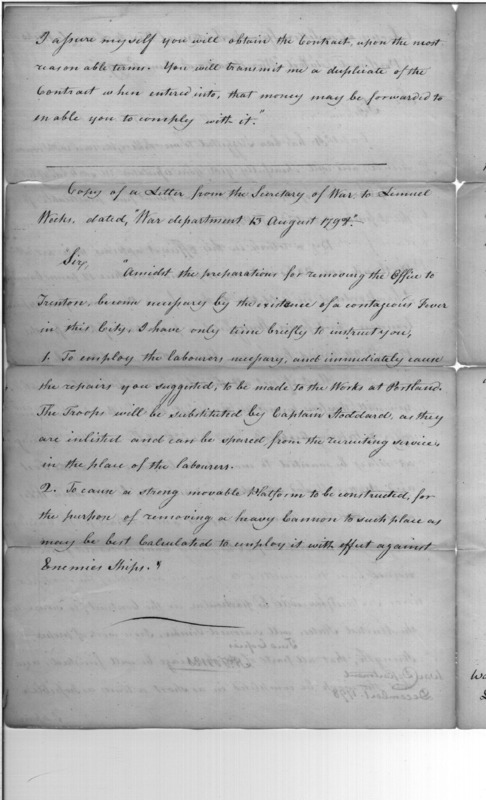 I assure myself you will obtain the Contract, upon the most
reasonable terms. You will transmit me a duplicate of the
Contract when entered into, that money may be forwarded to
enable you to comply with it."
Copy of a Letter from the Secretary of War to Lemuel
Weeks, dated, "War department 13 August 1798".
Sir,
"Amidst the preparations for removing the Office to
Trenton, become necessary by the existence of a contagious Fever
in this City, I have only time briefly to instruct you,
1. To employ the labourers necessary, and immediately cause
the repairs you suggested, to be made to the Works at Portland.
The Troops will be substituted by Captain Stoddard, as they
are inlisted and can be spared from the recruiting service,
in the place of the labourers.
2. To cause a strong movable Platform to be constructed, for
the purpose of removing a heavy Cannon to such place as
may be best Calculated to employ it with effect against
Enemies Ships."
True Copies
War Department
December 1798